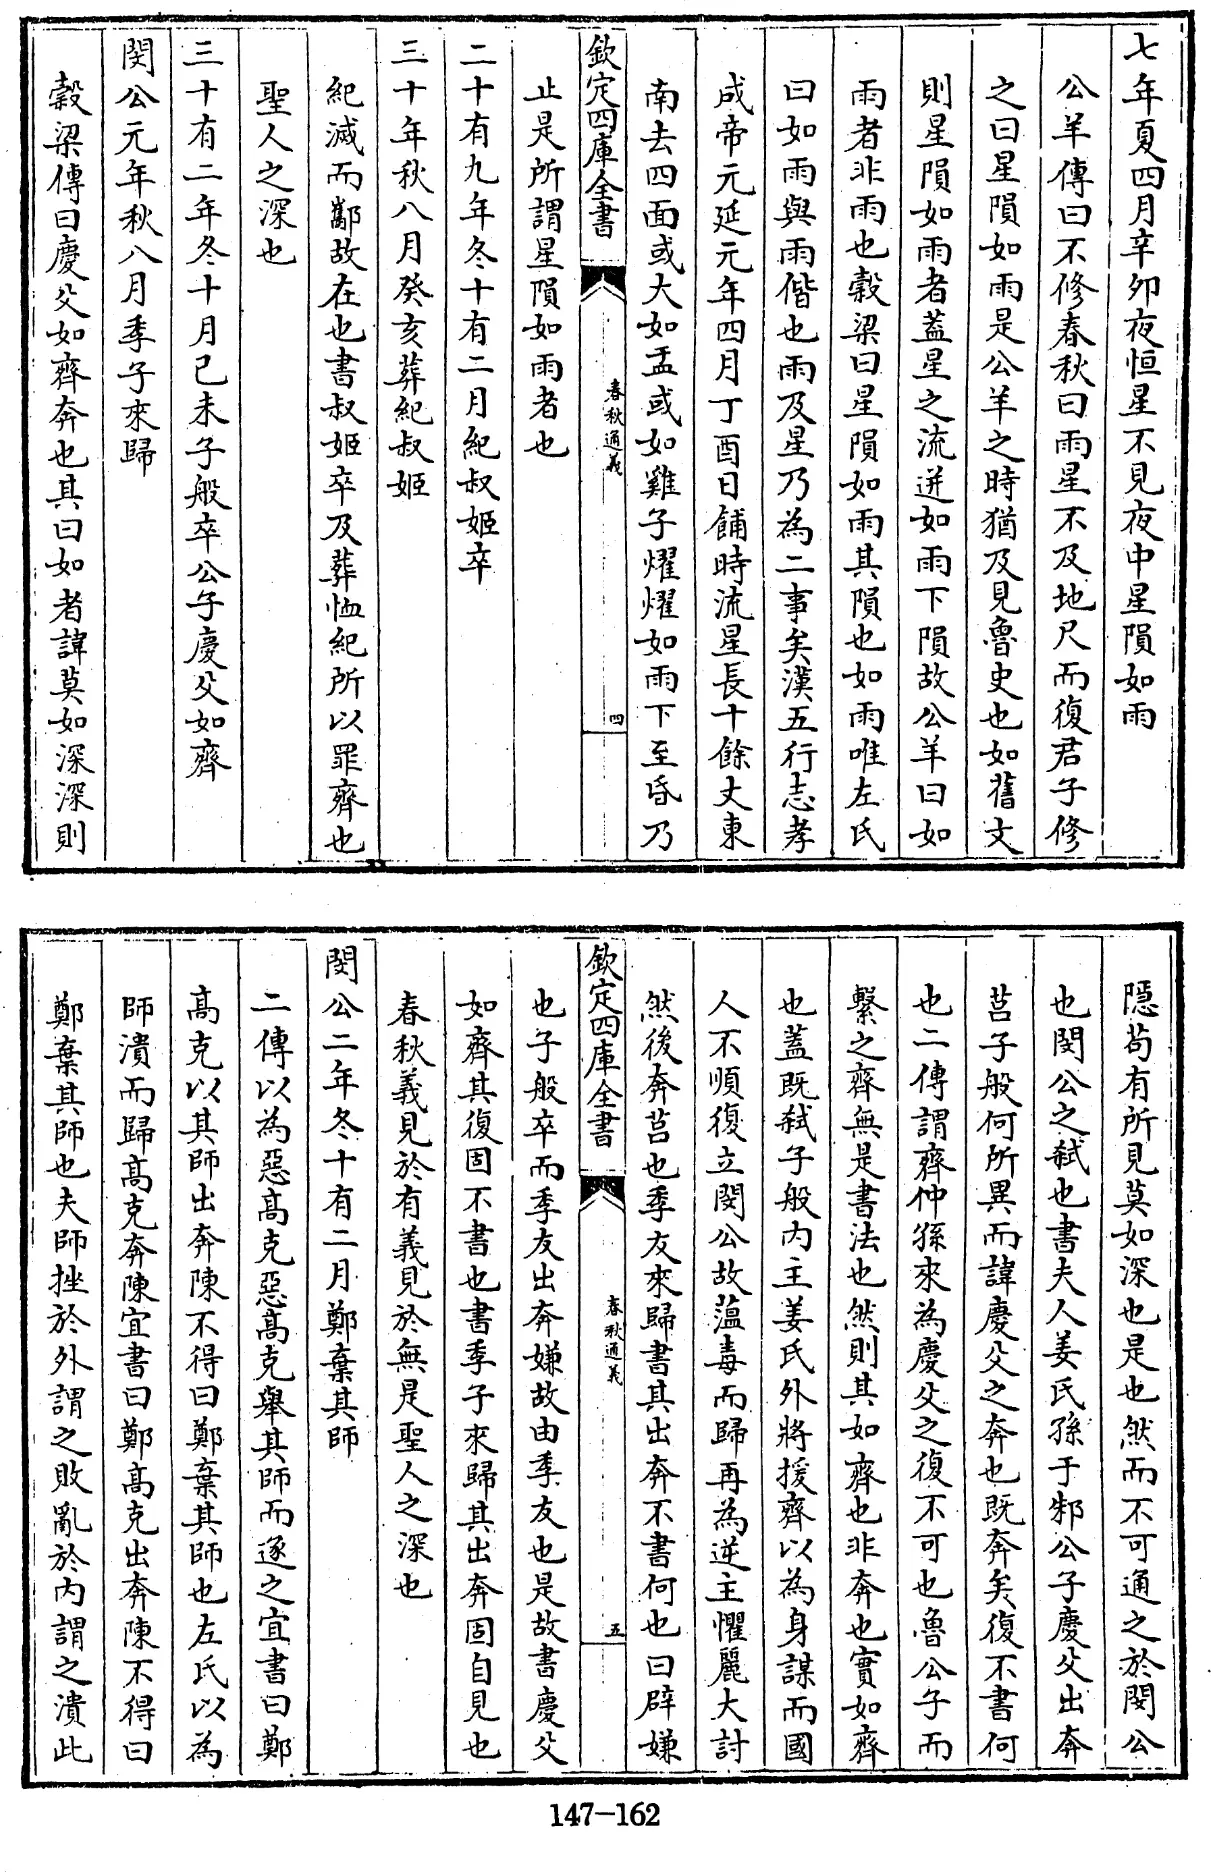 七年夏四月辛卯夜恒星不見夜中星隕如雨
公羊傳曰不修春秋曰雨星不及地尺而復君子修
之曰星隕如雨是公羊之時猶及見魯史也如舊文
則星隕如雨者蓋星之流迸如雨下隕故公羊曰如
雨者非雨也穀梁曰星隕如雨其隕也如雨唯左氏
曰如雨與雨偕也雨及星乃為二事矣漢五行志孝
成帝元延元年四月丁酉日餔時流星長十餘丈東
南去四面或大如盂或如雞子燿燿如雨下至昏乃
欽定四庫全書
春秋通義
四
止是所謂星隕如雨者也
二十有九年冬十有二月紀叔姬卒
三十年秋八月癸亥葬紀叔姬
紀滅而酅故在也書叔姬卒及葬恤紀所以罪齊也
聖人之深也
三十有二年冬十月己未子般卒公子慶父如齊
閔公元年秋八月季子來歸
穀梁傳曰慶父如齊奔也其曰如者諱莫如深深則
隱苟有所見莫如深也是也然而不可通之於閔公
也閔公之弒也書夫人姜氏孫于邾公子慶父出奔
莒子般何所異而諱慶父之奔也既奔矣復不書何
也二傳謂齊仲孫來為慶父之復不可也魯公子而
繫之齊無是書法也然則其如齊也非奔也實如齊
也蓋既弒子般內主姜氏外將援齊以為身謀而國
人不順復立閔公故蕰毒而歸再為逆主懼麗大討
然後奔莒也季友來歸書其出奔不書何也曰辟嫌
欽定四庫全書
春秋通義
五
也子般卒而季友出奔嫌故由季友也是故書慶父
如齊其復固不書也書季子來歸其出奔固自見也
春秋義見於有義見於無是聖人之深也
閔公二年冬十有二月鄭棄其師
二傳以為惡高克惡高克舉其師而逐之宜書曰鄭
高克以其師出奔陳不得曰鄭棄其師也左氏以為
師潰而歸高克奔陳宜書曰鄭高克出奔陳不得曰
鄭棄其師也夫師挫於外謂之敗亂於內謂之潰此
147-162